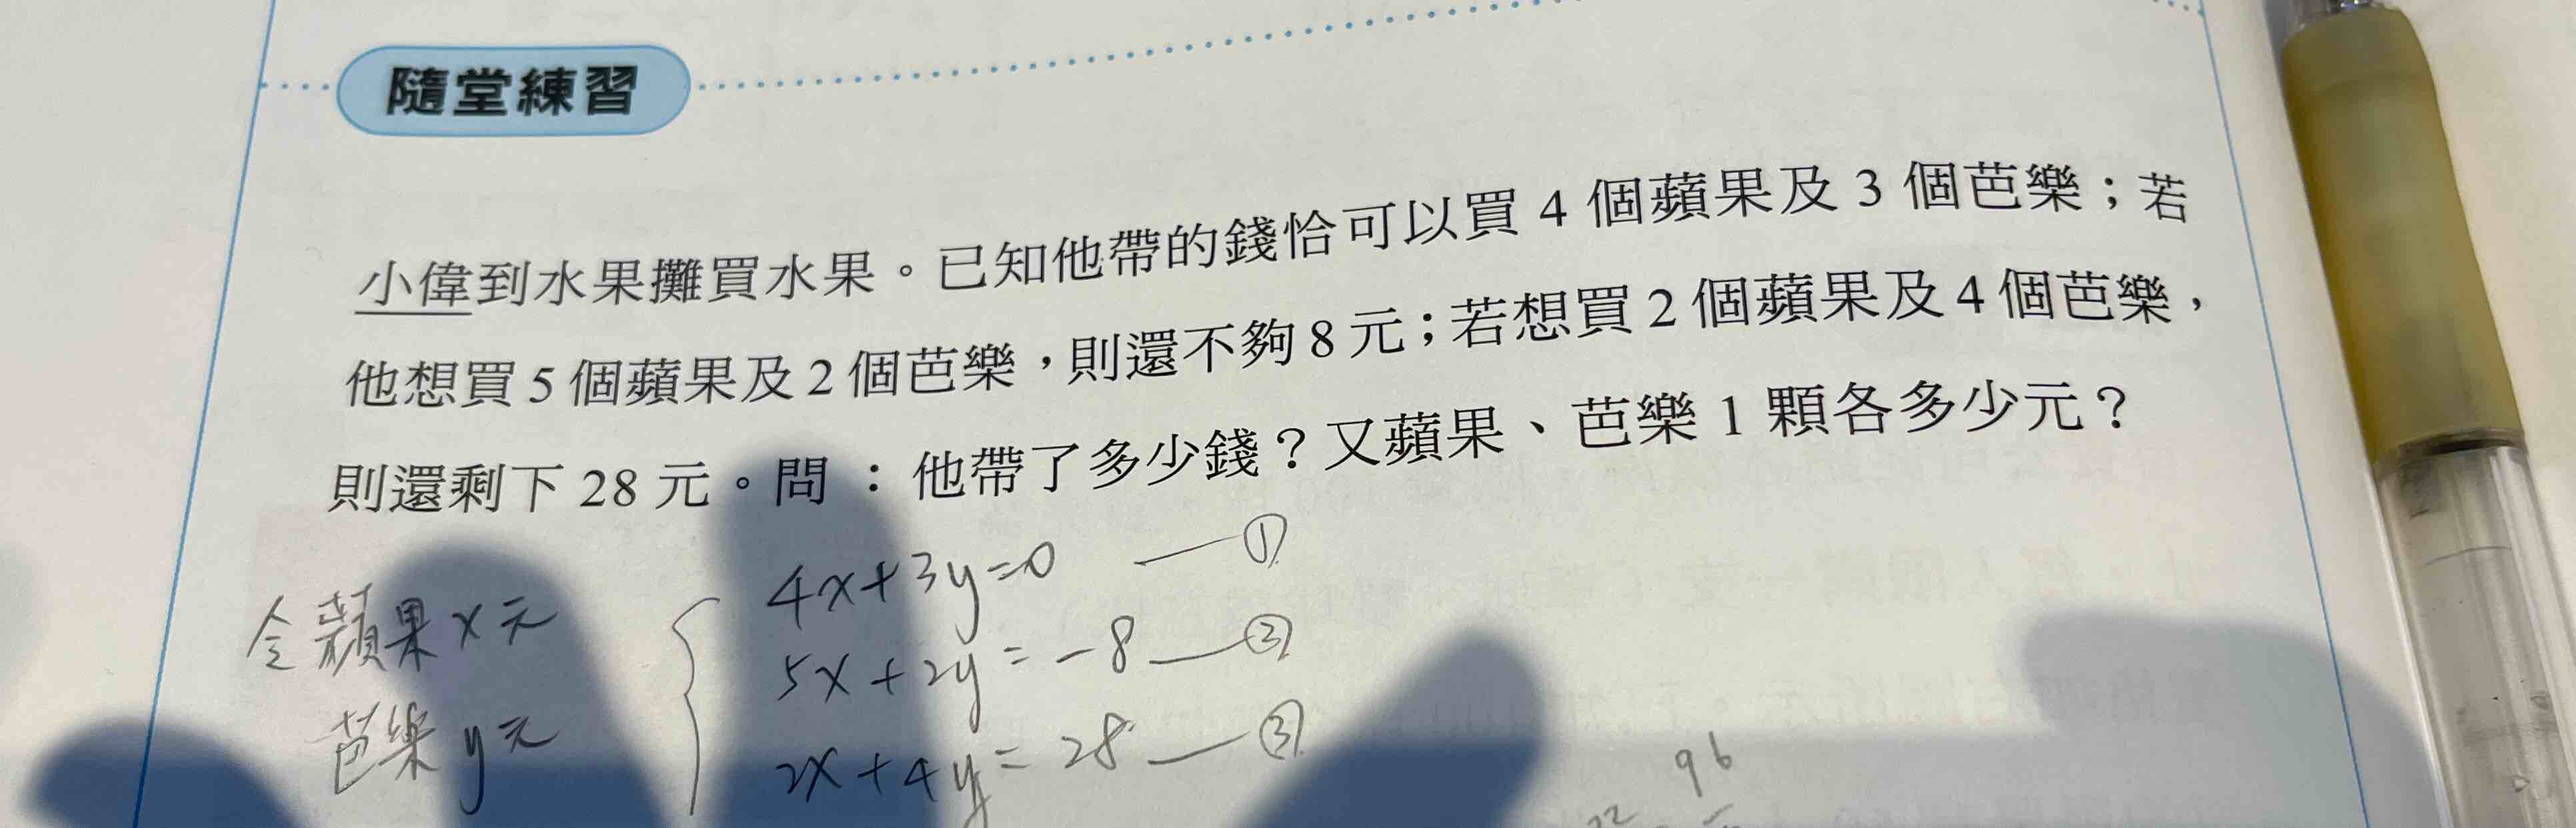 隨堂練習
小偉到水果攤買水果。已知他帶的錢恰可以買 4 個蘋果及 3 個芭樂；若
他想買 5 個蘋果及 2 個芭樂，則還不夠 8 元；若想買 2 個蘋果及 4 個芭樂，
則還剩下 28 元。問：他帶了多少錢？又蘋果、芭樂 1 顆各多少元？
令蘋果 x 元
芭樂 y 元
4x+3y=0 —①
5x+2y=-8 —②
2x+4y=28 —③
96